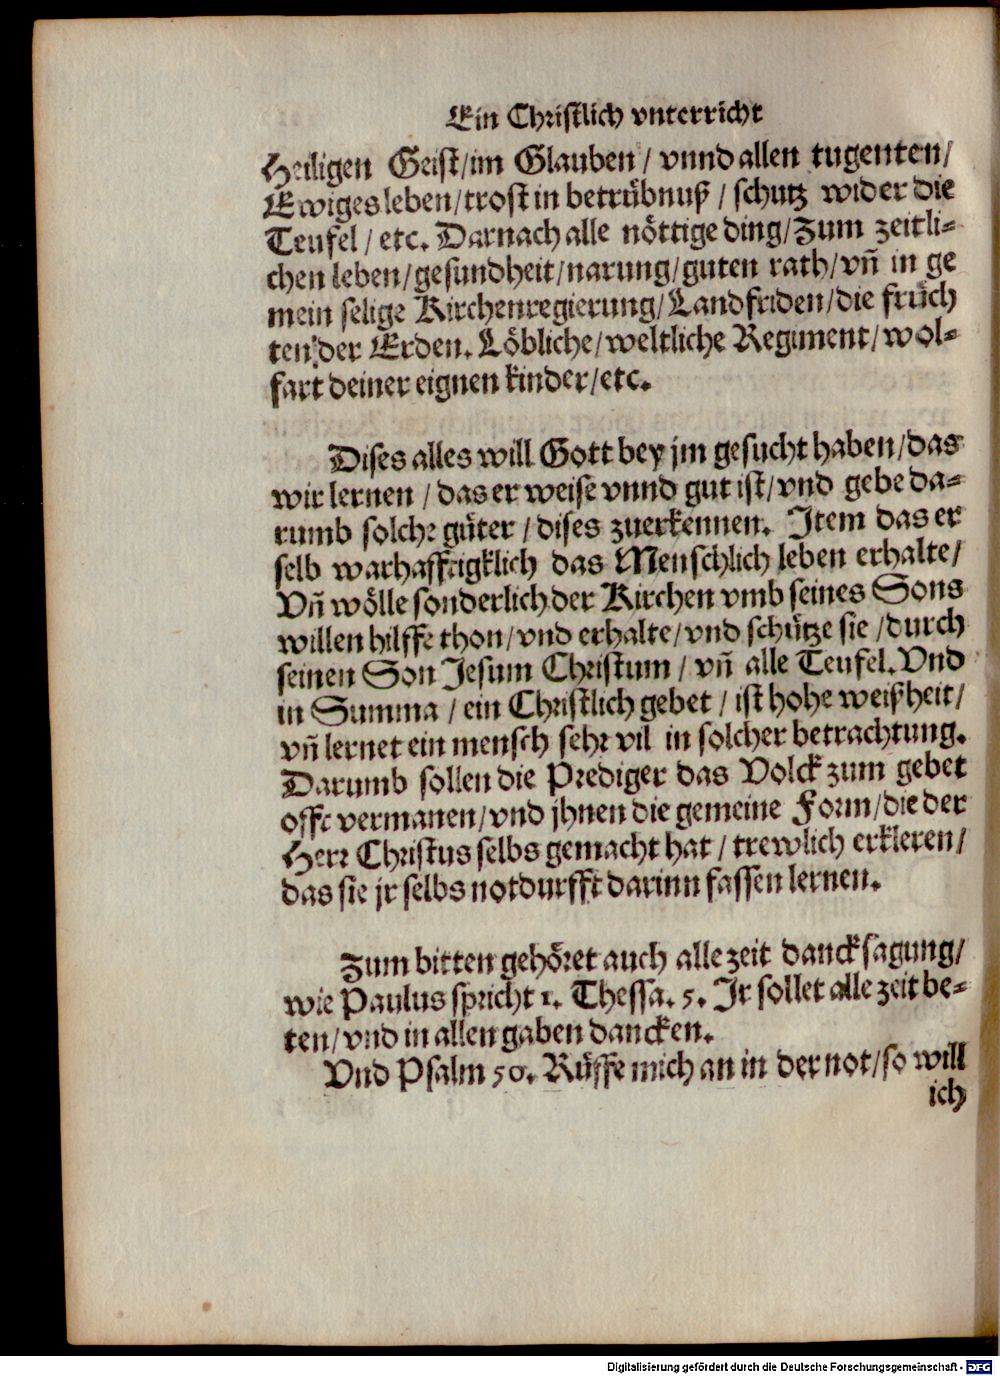 Ein Christlich vnterricht
Heiligen Geist/im Glauben/ vnnd allen tugenten/
Ewiges leben/trost in betrübnuß/ schutz wider die
Teufel/ etc. Darnach alle nöttige ding/Zum zeitli-
chen leben/gesundheit/narung/guten rath/vñ in ge
mein selige Kirchenregierung/Landfriden/die früch
ten der Erden. Löbliche/weltliche Regiment/wol-
fart deiner eignen kinder/etc.
Dises alles will Gott bey jm gesucht haben/das
wir lernen/das er weise vnnd gut ist/vnd gebe da-
rumb solche güter/dises zuerkennen. Item das er
selb warhafftigklich das Menschlich leben erhalte/
Vñ wölle sonderlich der Kirchen vmb seines Sons
willen hilffe thon/vnd erhalte/vnd schütze sie/durch
seinen Son Jesum Christum/ vñ alle Teufel. Vnd
in Summa/ein Christlich gebet/ist hohe weißheit/
vñ lernet ein mensch sehr vil in solcher betrachtung.
Darumb sollen die Prediger das Volck zum gebet
offt vermanen/vnd jhnen die gemeine Form/die der
Herr Christus selbs gemacht hat/trewlich erkleren/
das sie jr selbs notdurfft darinn fassen lernen.
Zum bitten gehöret auch alle zeit dancksagung/
wie Paulus spricht 1. Thessa. 5. Ir sollet alle zeit be-
ten/vnd in allen gaben dancken.
Vnd Psalm 50. Rüffe mich an in der not/so will
ich
Digitalisierung gefördert durch die Deutsche Forschungsgemeinschaft - DFG